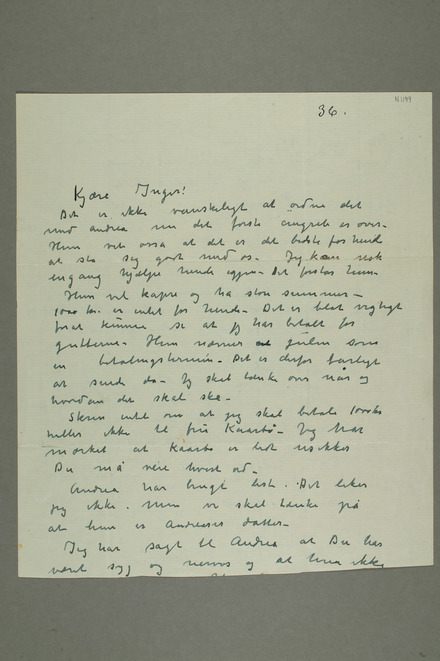 N 1199
36.
Kjære Inger!
Det er ikke vanskeligt at ordne det
med Andrea nu det første er over.
Hun vet ossa at det er det bedste for hende
at sto seg godt med os. Jeg kan nok
engang hjelpe hende igjen. Det forstår hun.
Hun vil knipe og ha store summer.
1000 kr. er intet for hende. Det er blet vigtigt
forat kunne se at jeg har betalt for
guttene. Hun nævner julen som
en betalingstermin. Det er derfor farligt
at sende da. Jeg skal tænke over når og
hvordan det skal ske.
Skriv intet om at jeg skal betale 1000kr
heller ikke til fru Kaarbø. Jeg har
mærket at Kaarbø er lidt usikker
Du må veie hvert ord.
Andrea har brugt list. Det liker
jeg ikke. Men vi skal tænke på
at hun er Andreases datter.
Jeg har sagt til Andrea at Du har
været syg og nervøs og at hun ikke